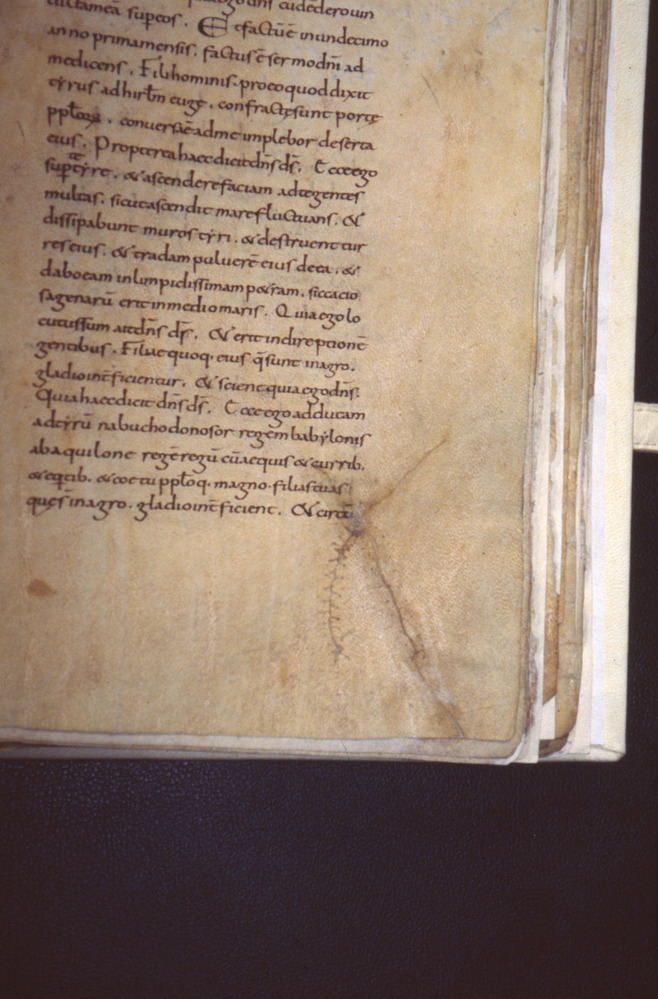 dns cu dederouin
dictamea supeos. Et factu e inundecimo
anno primamensis. factus e sermo dni ad
me dicens. Fili hominis. proeo quod dixit
tyrus ad hirlm euge. confractę sunt portę
pplos. conversa e ad me implebor deserta
eius. Propterea haec dicit dns ds. Ecce ego
sup te tyre. & ascendere faciam ad te gentes
multas. sicut ascendit mare fluctuans. &
dissipabunt muros tyri. & destruent tur
res eius. & radam pulvere eius de ea. &
dabo eam in limpidissimam p&ram. siccacio
sagenaru erit in medio maris. Quia ego lo
cutus sum ait dns ds. & erit in direptione
gentibus. Filiae quoq. eius q sunt in agro.
gladio int ficientur. & scient quia ego dns.
Quia haec dicit dns ds. Ecce ego adducam
ad tyru nabuchodonosor regem babylonis
ab aquilone rege regu cu aequis & currib.
& eqtib. & coetu pploq. magno. filias tuas
quęs in agro. gladio int ficient. & circu